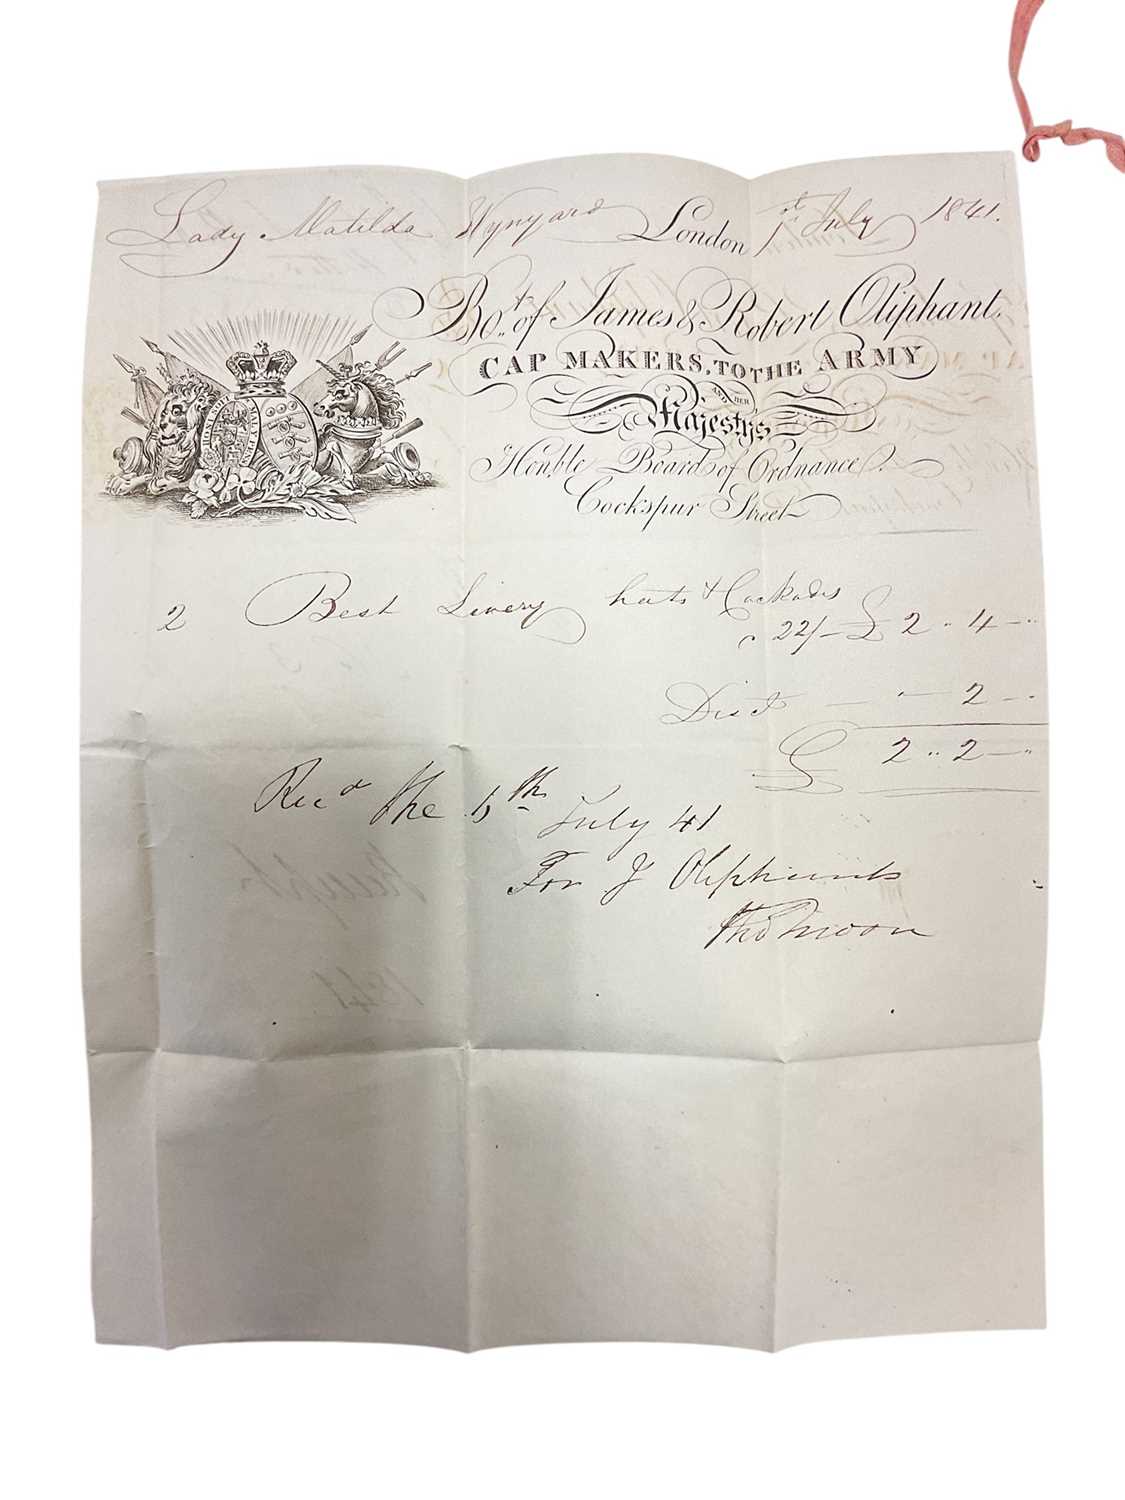 Lady Matilda Wynyard London 1st July 1841.
Bot. of James & Robert Oliphant.
CAP MAKERS, TO THE ARMY
AND HER
Majestys
Honble. Board of Ordnance.
Cockspur Street
2 Best Livery hats & Cockades
22/- £ 2 " 4 - "
Disct - " - 2 - "
£ 2 " 2 - "
Recd the 6th July 41
For J Oliphants
Thos Moon